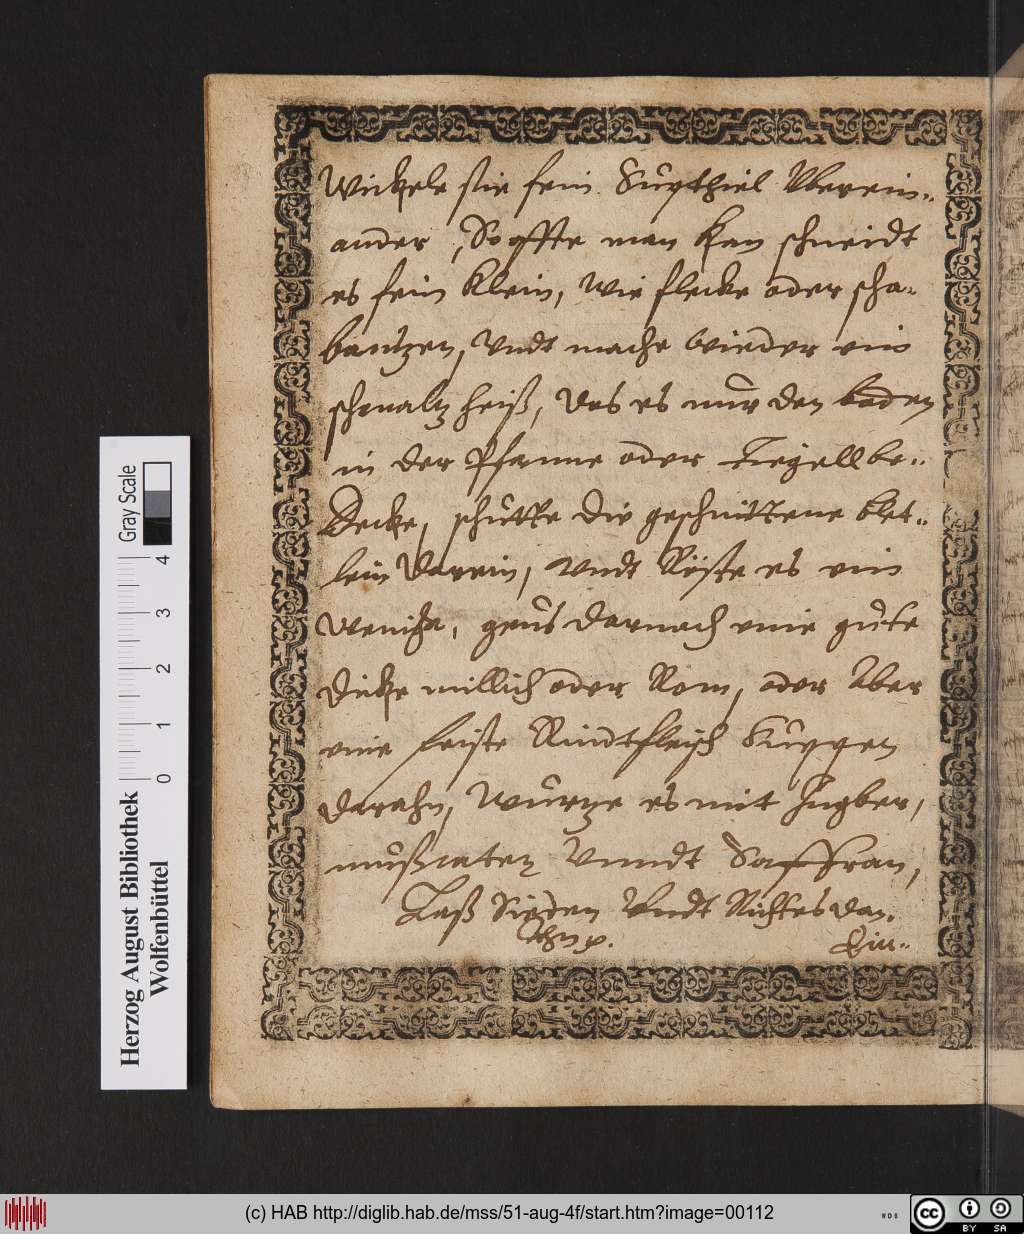 Wickele sie fein Subthiel Vberein-
ander, So offte man kan schneidt
es fein klein, wie flecke oder scha-
bantzen, Vndt mache wieder ein
schmaltz heiß, das es nur den boden
in der Pfanne oder Tiegell be-
decke, schütte die geschnittene blet-
lein darein, Vndt Röste es ein
Wenich, geus darnach eine gute
dicke millich oder Rom, oder Aber
eine feiste Rindtfleisch Suppen
darahn, Würtze es mit Ingber,
mußcaten Vnndt Saffran,
Laß Sieden Vndt Richtes dan
Ein-
Herzog August Bibliothek
Wolfenbüttel
Gray Scale
0 1 2 3 4
(c) HAB http://diglib.hab.de/mss/51-aug-4f/start.htm?image=00112
WDB
CC BY SA